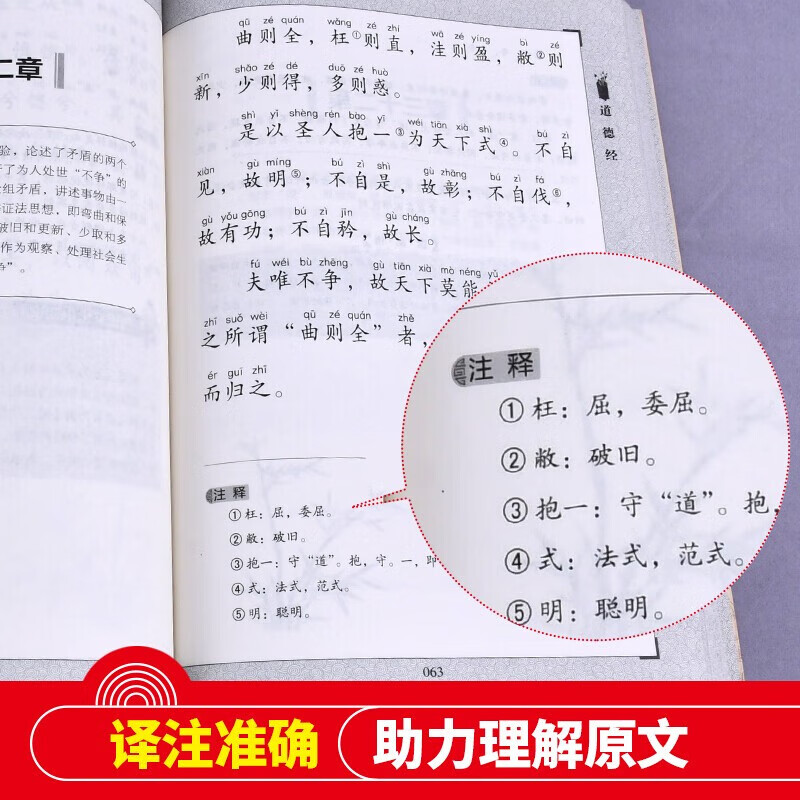 二章
验，论述了矛盾的两个
了为人处世“不争”的
组矛盾，讲述事物由一
证法思想，即弯曲和保
破旧和更新、少取和多
作为观察、处理社会生
争”。
qū zé quán wǎng zé zhí wā zé yíng bì zé
曲则全，枉①则直，洼则盈，敝②则
xīn shǎo zé dé duō zé huò
新，少则得，多则惑。
shì yǐ shèng rén bào yī wéi tiān xià shì bú zì
是以圣人抱一③为天下式④。不自
xiàn gù míng bú zì shì gù zhāng bú zì fá
见，故明⑤；不自是，故彰；不自伐⑥，
gù yǒu gōng bú zì jīn gù cháng
故有功；不自矜，故长。
fú wéi bù zhēng gù tiān xià mò néng yǔ
夫唯不争，故天下莫能
zhī suǒ wèi qū zé quán zhě
之所谓“曲则全”者，
ér guī zhī
而归之。
注释
①枉：屈，委屈。
②敝：破旧。
③抱一：守“道”。抱，守。一，即
④式：法式，范式。
⑤明：聪明。
063
道德经
注释
①枉：屈，委屈。
②敝：破旧。
③抱一：守“道”。抱，
④式：法式，范式。
⑤明：聪明。
译注准确 助力理解原文